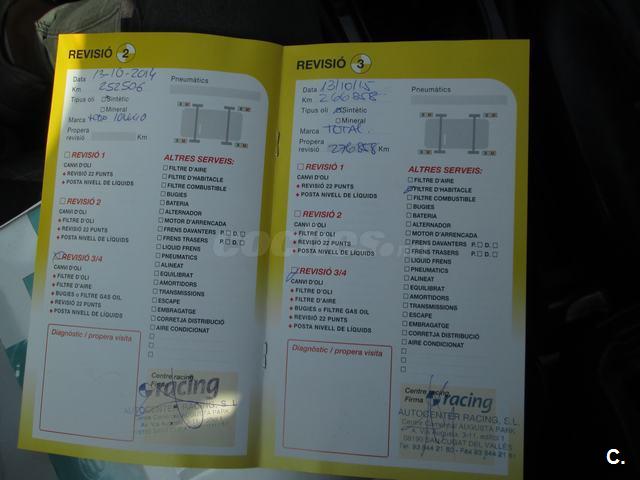 REVISIÓ 2
Data 13-10-2014
Km 252506
Tipus oli Sintètic
Mineral
Marca
Propera
revisió Km
Pneumàtics
REVISIÓ 1
CANVI D'OLI
REVISIÓ 22 PUNTS
POSTA NIVELL DE LÍQUIDS
REVISIÓ 2
CANVI D'OLI
FILTRE D'OLI
REVISIÓ 22 PUNTS
POSTA NIVELL DE LÍQUIDS
REVISIÓ 3/4
CANVI D'OLI
FILTRE D'OLI
FILTRE D'AIRE
BUGIES o FILTRE GAS OIL
REVISIÓ 22 PUNTS
POSTA NIVELL DE LÍQUIDS
Diagnòstic / propera visita
ALTRES SERVEIS:
FILTRE D'AIRE
FILTRE D'HABITACLE
FILTRE COMBUSTIBLE
BUGIES
BATERIA
ALTERNADOR
MOTOR D'ARRENCADA
FRENS DAVANTERS P. D.
FRENS TRASERS P. D.
LIQUID FRENS
PNEUMATICS
ALINEAT
EQUILIBRAT
AMORTIDORS
TRANSMISSIONS
ESCAPE
EMBRAGATGE
CORRETJA DISTRIBUCIÓ
AIRE CONDICIONAT
Centre racing
Firma
racing
AUTOCENTER RACING, S.L.
Centre Comercial AUGUSTA PARK
REVISIÓ 3
Data 13/10/15
Km 266858
Tipus oli Sintètic
Mineral
Marca TOTAL
Propera
revisió 276858 Km
Pneumàtics
REVISIÓ 1
CANVI D'OLI
REVISIÓ 22 PUNTS
POSTA NIVELL DE LÍQUIDS
REVISIÓ 2
CANVI D'OLI
FILTRE D'OLI
REVISIÓ 22 PUNTS
POSTA NIVELL DE LÍQUIDS
REVISIÓ 3/4
CANVI D'OLI
FILTRE D'OLI
FILTRE D'AIRE
BUGIES o FILTRE GAS OIL
REVISIÓ 22 PUNTS
POSTA NIVELL DE LÍQUIDS
Diagnòstic / propera visita
ALTRES SERVEIS:
FILTRE D'AIRE
FILTRE D'HABITACLE
FILTRE COMBUSTIBLE
BUGIES
BATERIA
ALTERNADOR
MOTOR D'ARRENCADA
FRENS DAVANTERS P. D.
FRENS TRASERS P. D.
LIQUID FRENS
PNEUMATICS
ALINEAT
EQUILIBRAT
AMORTIDORS
TRANSMISSIONS
ESCAPE
EMBRAGATGE
CORRETJA DISTRIBUCIÓ
AIRE CONDICIONAT
Centre racing
Firma
racing
AUTOCENTER RACING, S.L.
Centre Comercial AUGUSTA PARK
A. Via Augusta, 3-11, edifici 1
08190 SAN CUGAT DEL VALLÈS
C.